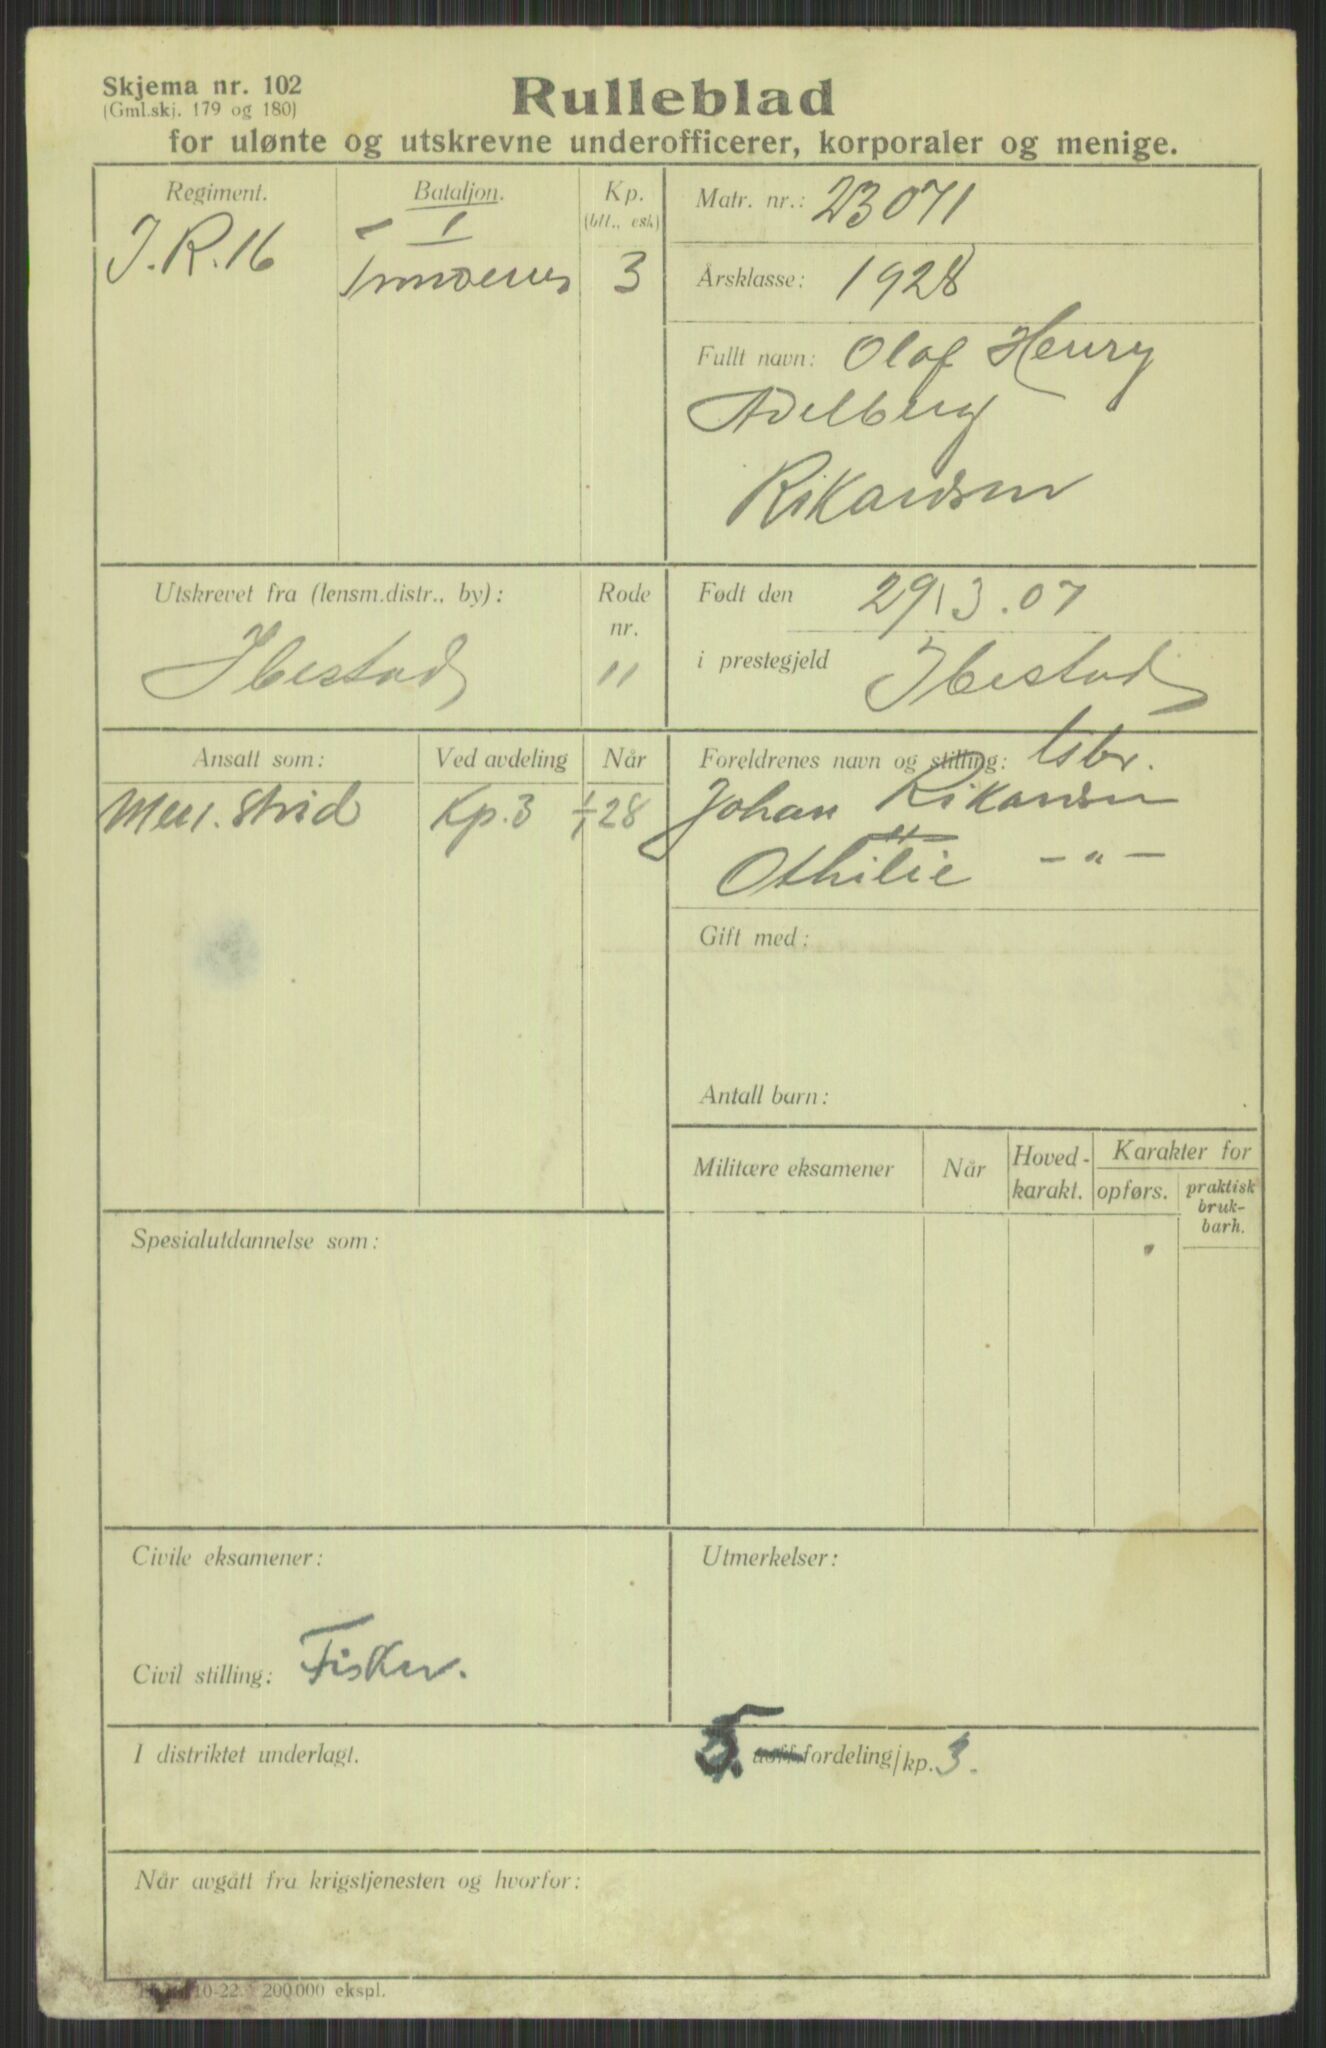 Skjema nr. 102
(Gml.skj. 179 og 180)
Rulleblad
for ulønte og utskrevne underofficerer, korporaler og menige.
Regiment.
J.R.16
Bataljon.
I
Kp.
(btt., esk)
3
Matr. nr.: 23071
Årsklasse: 1928
Fullt navn: Olaf Henry
Adelberg
Rikardsen
Utskrevet fra (lensm.distr., by):
Ibestad
Rode
nr.
"
Født den 29/3.07
i prestegjeld Ibestad
Ansatt som:
Men. strid
Ved avdeling
Kp. 3
Når
1/1 28
Foreldrenes navn og stilling: Gsbr.
Johan Rikardsen
Othilie — " —
Gift med:
Antall barn:
Militære eksamener
Når
Hoved-
karakt.
Karakter for
opførs.
praktisk
bruk-
barh.
Spesialutdannelse som:
Civile eksamener:
Civil stilling: Fisker.
Utmerkelser:
I distriktet underlagt.
5. fordeling/kp. 3.
Når avgått fra krigstjenesten og hvorfor:
10-22. 200000 ekspl.